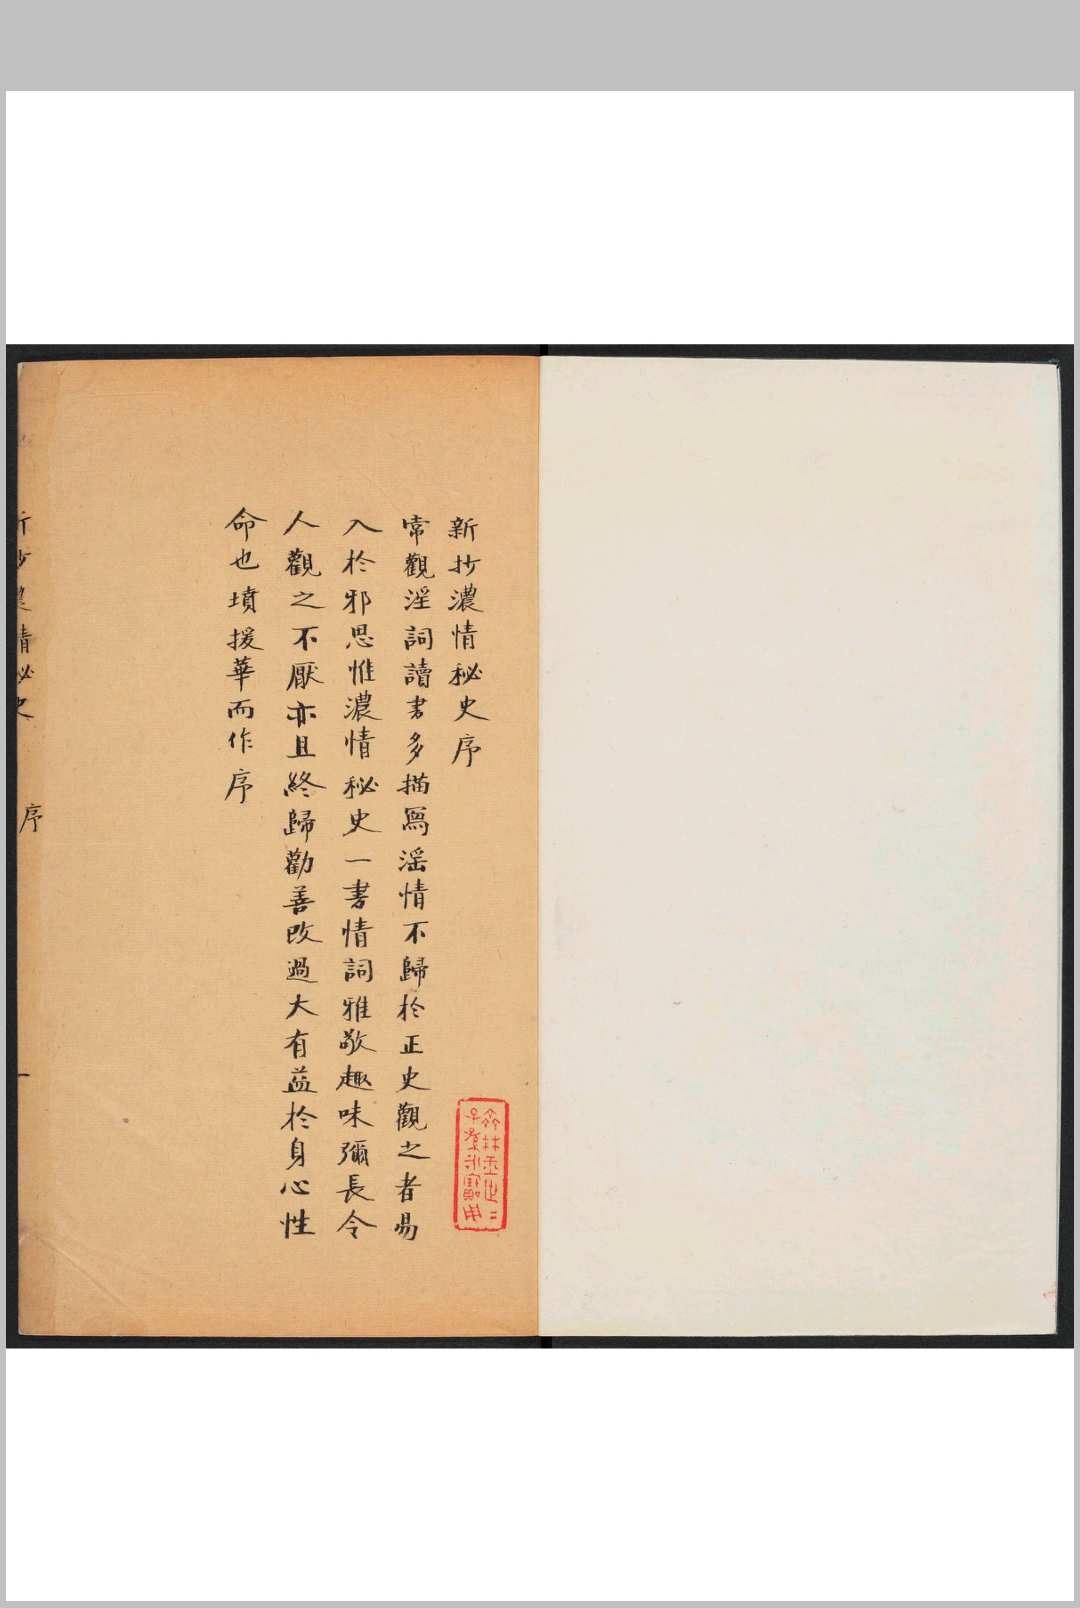 新抄濃情秘史序
常觀淫詞讀書多描寫淫情不歸於正史觀之者易
入於邪思惟濃情秘史一書情詞雅敬趣味彌長令
人觀之不厭亦且終歸勸善改過大有益於身心性
命也墳援華而作序
新抄濃情秘史 序 一